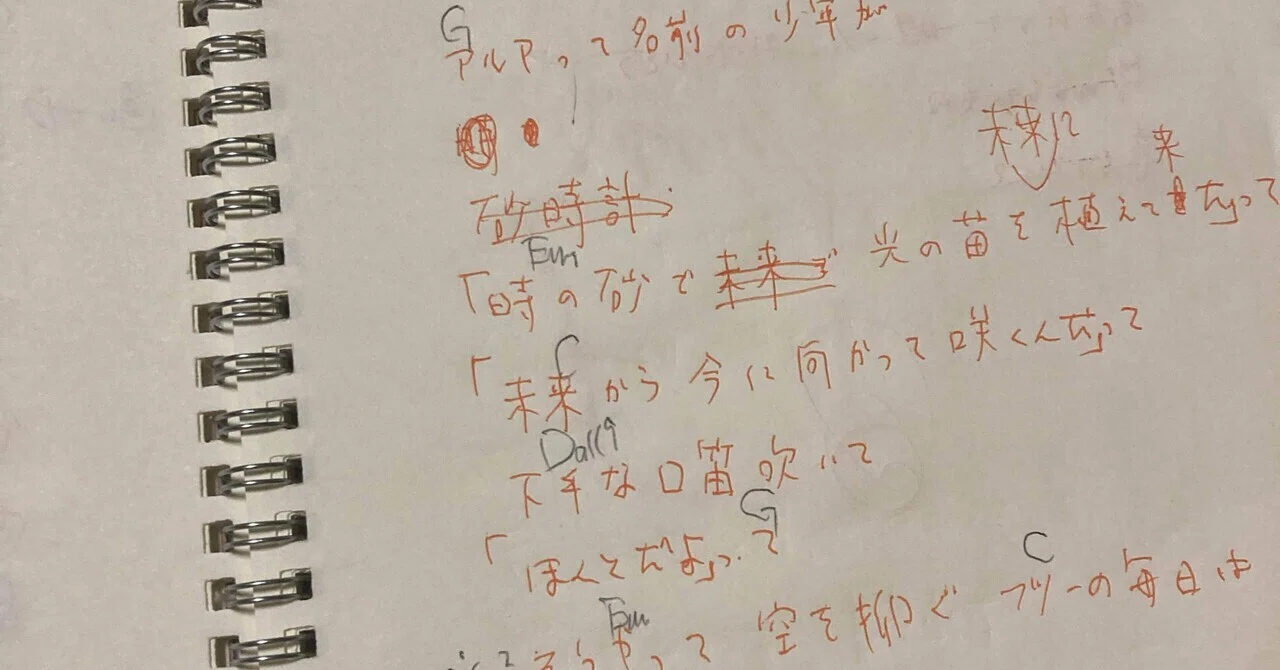 G
アルアって名前の少年が
砂時計
未来に 来
Em
「時の砂で未来で 光の苗を植えて だよって
C
「未来から今に向かって咲くんだよって
Dadd9
下手な口笛吹いて
G
「ほんとだよって
Em C
そうやって 空を仰ぐ フリーの毎日は